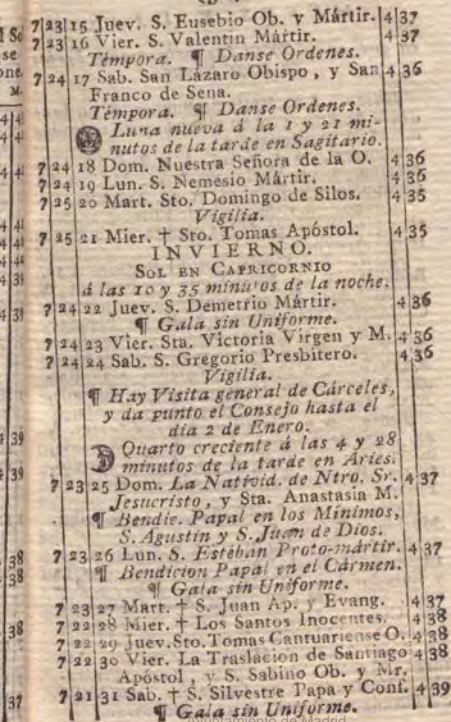 7 23 15 Juev. S. Eusebio Ob. y Mártir. 4 37
7 23 16 Vier. S. Valentin Mártir. 4 37
Témpora. ¶ Danse Ordenes.
7 24 17 Sab. San Lázaro Obispo, y San 4 36
Franco de Sena.
Témpora. ¶ Danse Ordenes.
Luna nueva á la 1 y 21 mi-
nutos de la tarde en Sagitario.
7 24 18 Dom. Nuestra Señora de la O. 4 36
7 24 19 Lun. S. Nemesio Mártir. 4 36
7 25 20 Mart. Sto. Domingo de Silos. 4 35
Vigilia.
7 25 21 Mier. † Sto. Tomas Apóstol. 4 35
INVIERNO.
SOL EN CAPRICORNIO
á las 10 y 35 minutos de la noche.
7 24 22 Juev. S. Demetrio Mártir. 4 36
¶ Gala sin Uniforme.
7 24 23 Vier. Sta. Victoria Virgen y M. 4 36
7 24 24 Sab. S. Gregorio Presbitero. 4 36
Vigilia.
¶ Hay Visita general de Cárceles,
y da punto el Consejo hasta el
dia 2 de Enero.
Quarto creciente á las 4 y 28
minutos de la tarde en Aries.
7 23 25 Dom. La Nativid. de Ntro. Sr. 4 37
Jesucristo, y Sta. Anastasia M.
¶ Bendic. Papal en los Mínimos,
S. Agustin y S. Juan de Dios.
7 23 26 Lun. S. Estéban Proto-mártir. 4 37
¶ Bendicion Papal en el Cármen.
¶ Gala sin Uniforme.
7 23 27 Mart. † S. Juan Ap. y Evang. 4 37
7 22 28 Mier. † Los Santos Inocentes. 4 38
7 22 29 Juev. Sto. Tomas Cantuariense O. 4 38
7 22 30 Vier. La Traslacion de Santiago 4 38
Apóstol, y S. Sabino Ob. y Mr.
7 21 31 Sab. † S. Silvestre Papa y Conf. 4 39
¶ Gala sin Uniforme.
Ayuntamiento de Madrid